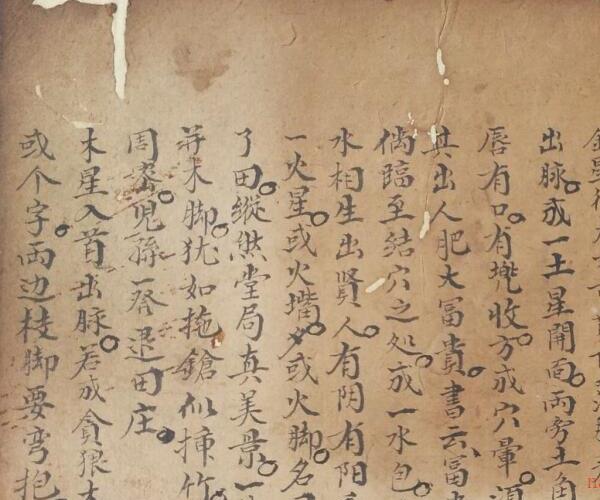 出脉成一土星開面两旁土角
唇有口有兠收方成穴暈
其出人肥大富貴書云富
倘臨至结穴之处成一水包
水相生出賢人有阴有阳
一火星或火墦夕或火脚名
了田縱然堂局真美景一
并木脚犹如拖鎗似挿竹
周密児孫一登退田庄
木星入首出脉若成貪狼
或个字両边枝脚要弯抱